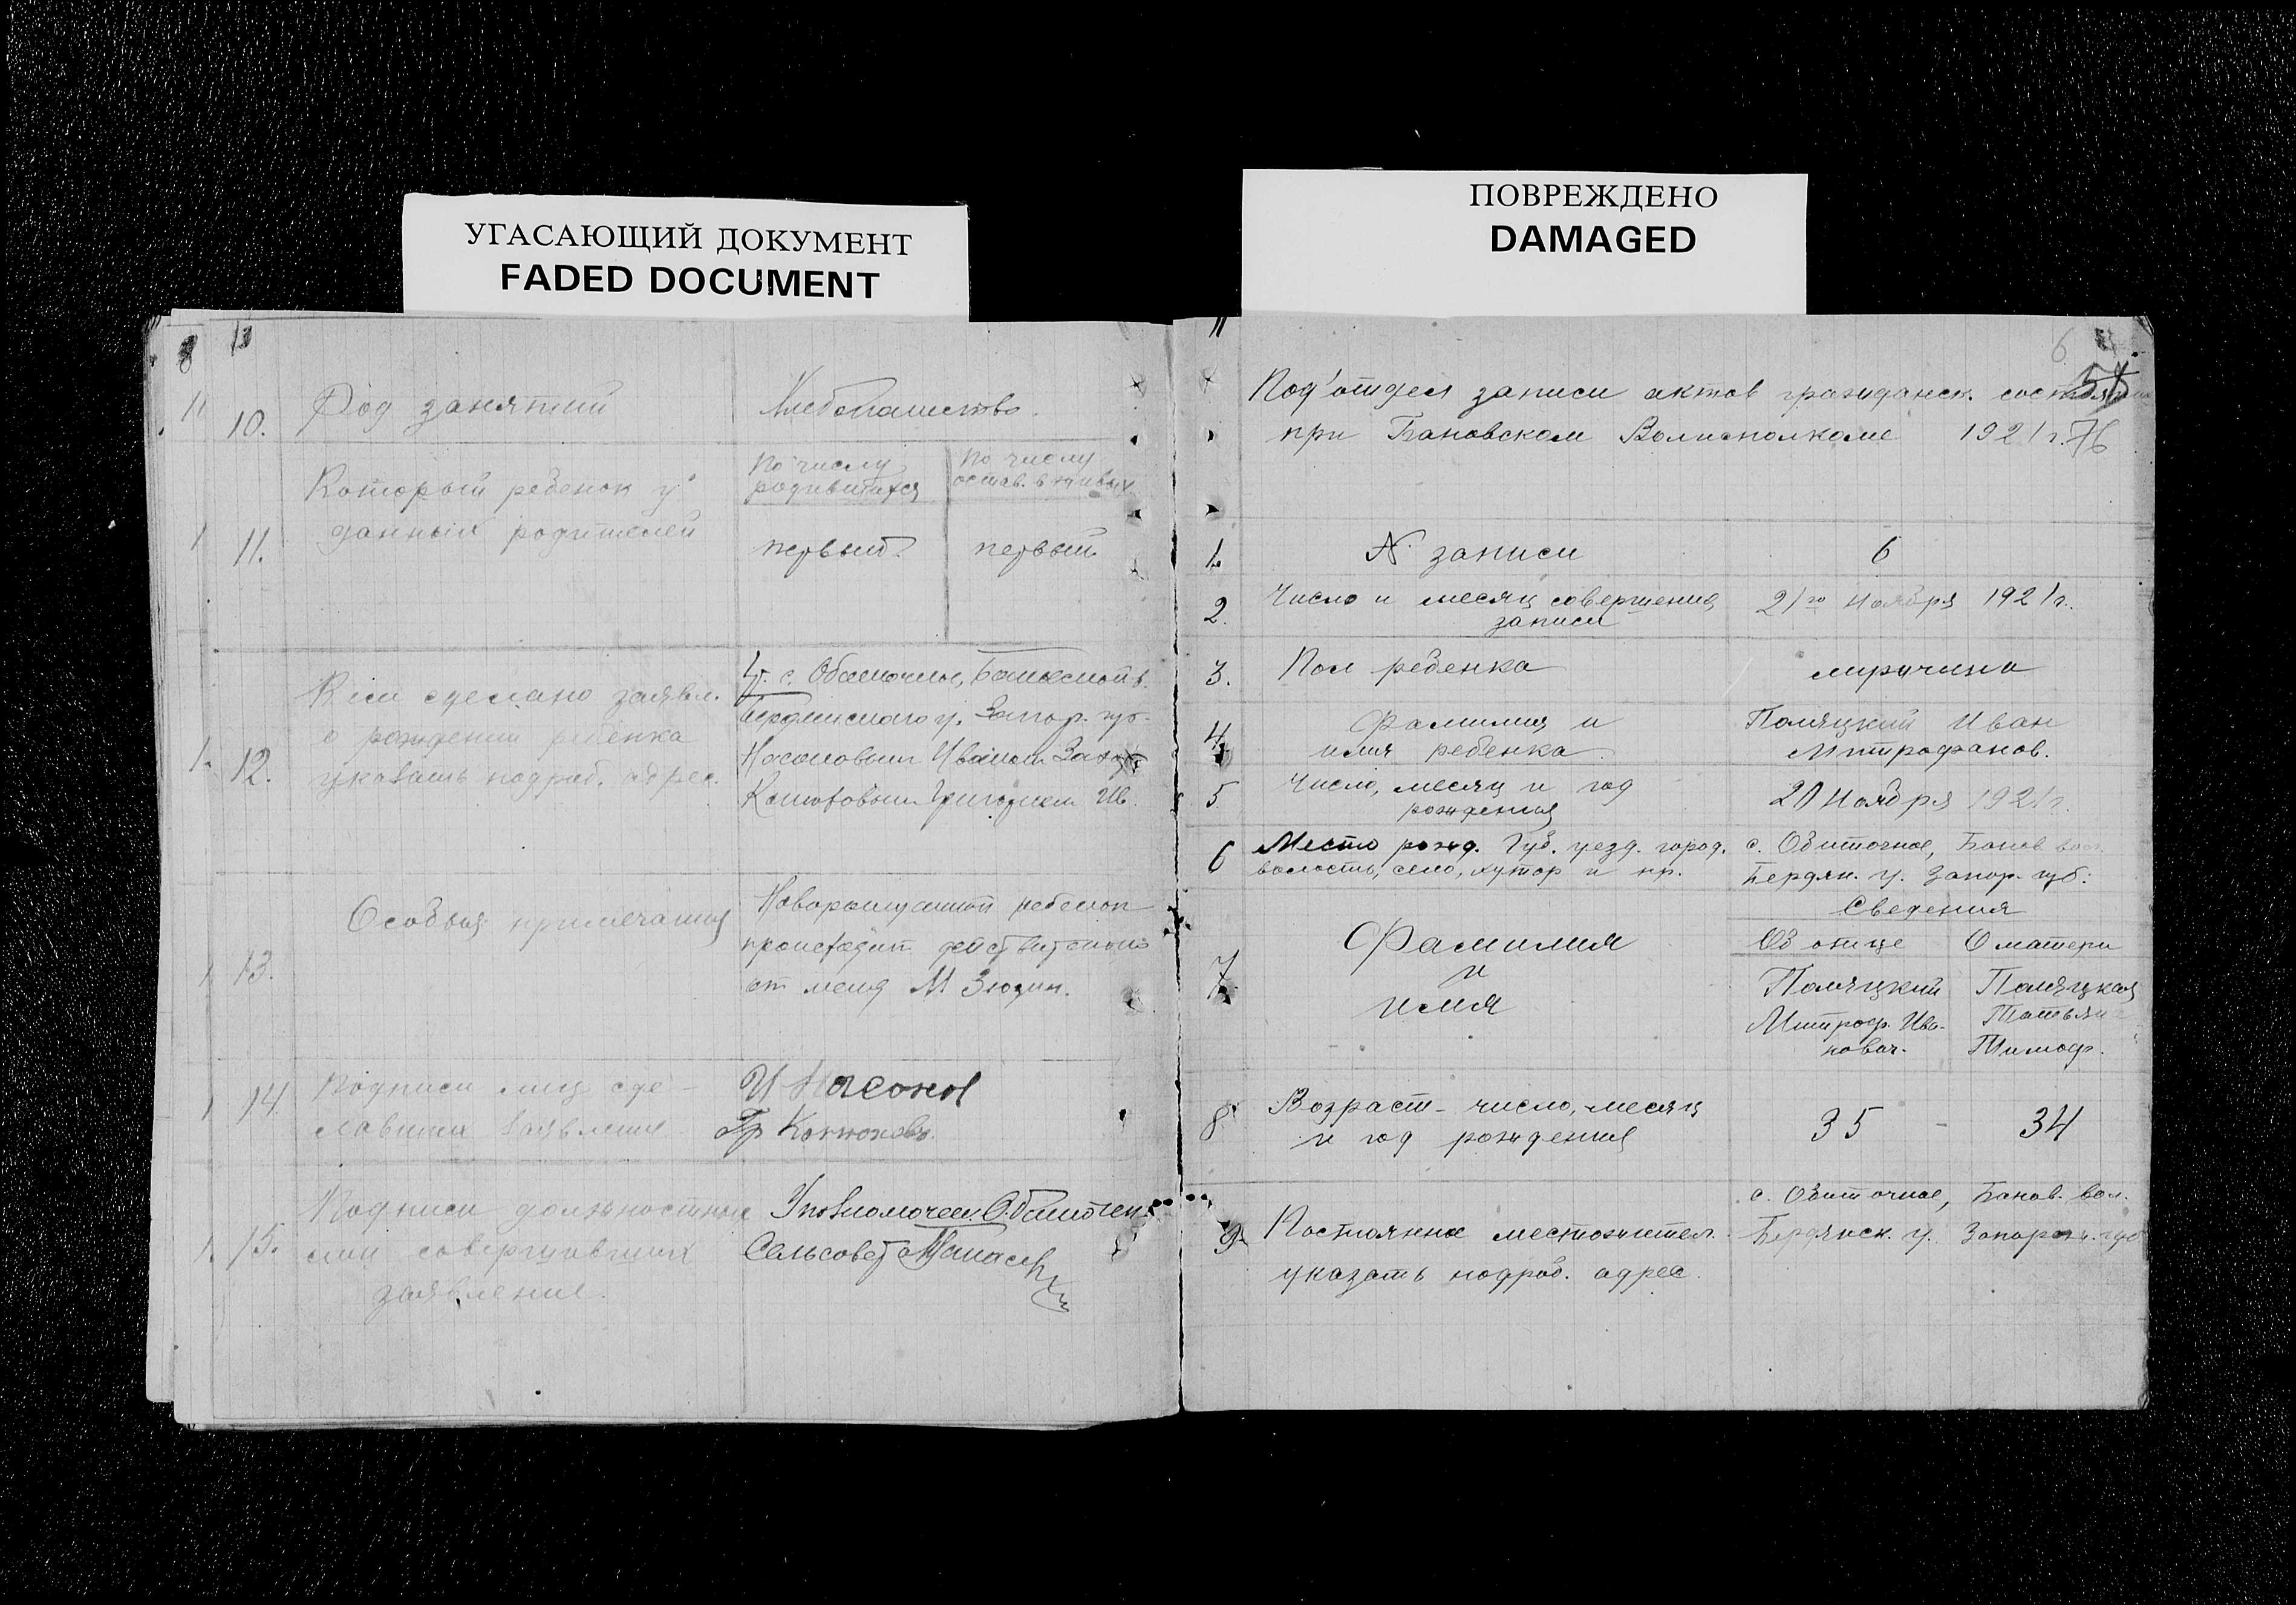 УГАСАЮЩИЙ ДОКУМЕНТ
FADED DOCUMENT
10. Род занятий
Хлебопашество.
11. Который ребенок у
данных родителей
По числу
родившихся
По числу
остав. в живых
первый
первый
12. Кем сделано заявл.
о рождении ребенка
указать подроб. адрес.
с. Обиточное,
Бердянского у. Запор. губ.
Насоновым Иваном
Григорием Ив.
13. Особыя примечания
ребенок
происходит действительно
от меня М Зюзин.
14. Подписи лиц сде-
лавших заявление
И Насонов
Гр
15. Подписи должностных
лиц совершивших
заявление.
Сельсовета
ПОВРЕЖДЕНО
DAMAGED
6
Под'отдел записи актов гражданск. состояния
при Бановском Волисполкоме 1921 г. 76
1. N записи
6
2. Число и месяц совершения
записи
21го Ноября 1921 г.
3. Пол ребенка
мужчина
4. Фамилия и
имя ребенка
Поляцкий Иван
Митрофанов.
5. Число, месяц и год
рождения
20 Ноября 1921 г.
6 Место рожд. Губ. уезд. город.
волость, село, хутор и пр.
с. Обиточное, Банов вол.
Бердян. у. Запор. губ.
Сведения
7 Фамилия
и
имя
Об отце
О матери
Поляцкий
Митроф. Ива-
нович.
Поляцкая
Татьяна
Тимоф.
8 Возраст - число, месяц
и год рождения
35 - 34
9. Постоянное местожител.
указать подроб. адрес.
с. Обиточное, Банов. вол.
Бердянск. у. Запорож. губ